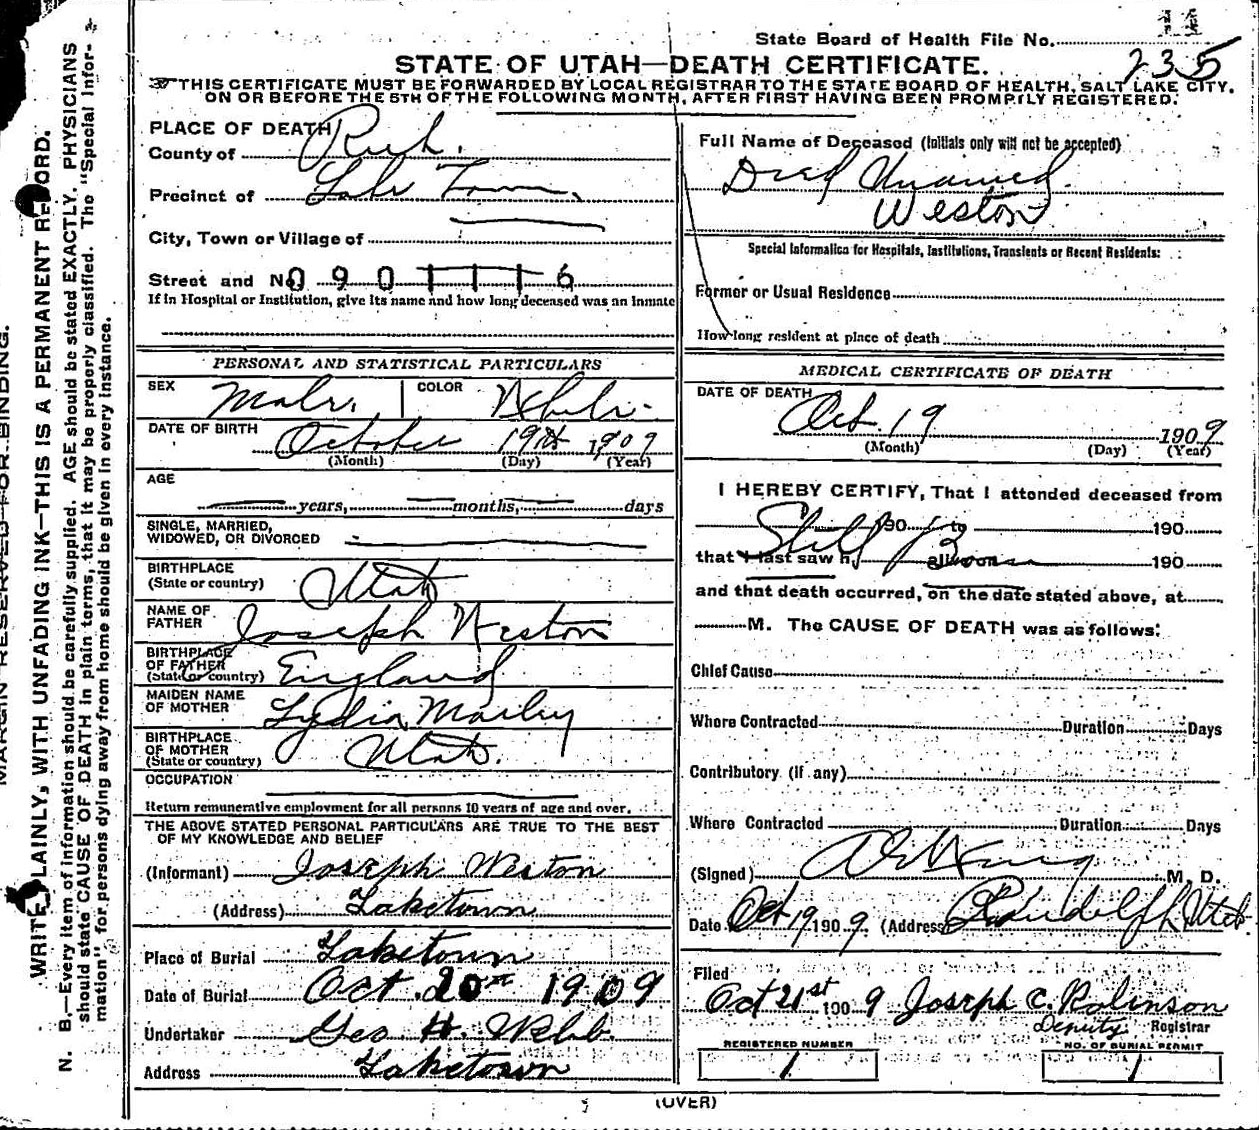 State Board of Health File No.
235
STATE OF UTAH—DEATH CERTIFICATE.
THIS CERTIFICATE MUST BE FORWARDED BY LOCAL REGISTRAR TO THE STATE BOARD OF HEALTH, SALT LAKE CITY,
ON OR BEFORE THE 5TH OF THE FOLLOWING MONTH, AFTER FIRST HAVING BEEN PROMPTLY REGISTERED.
MARGIN RESERVED FOR BINDING.
WRITE PLAINLY, WITH UNFADING INK—THIS IS A PERMANENT RECORD.
N. B.—Every item of information should be carefully supplied. AGE should be stated EXACTLY. PHYSICIANS
should state CAUSE OF DEATH in plain terms, that it may be properly classified. The "Special Infor-
mation" for persons dying away from home should be given in every instance.
PLACE OF DEATH
County of Rich.
Precinct of Lake Town.
City, Town or Village of
Street and No. 0901116
If in Hospital or Institution, give its name and how long deceased was an inmate
PERSONAL AND STATISTICAL PARTICULARS
SEX Male. COLOR White.
DATE OF BIRTH October 19th 1909
(Month) (Day) (Year)
AGE
years, months, days
SINGLE, MARRIED,
WIDOWED, OR DIVORCED
BIRTHPLACE
(State or country) Utah
NAME OF
FATHER Joseph Weston
BIRTHPLACE
OF FATHER
(State or country) England
MAIDEN NAME
OF MOTHER Lydia Morley
BIRTHPLACE
OF MOTHER
(State or country) Utah.
OCCUPATION
Return remunerative employment for all persons 10 years of age and over.
THE ABOVE STATED PERSONAL PARTICULARS ARE TRUE TO THE BEST
OF MY KNOWLEDGE AND BELIEF
(Informant) Joseph Weston
(Address) Laketown
Place of Burial Laketown
Date of Burial Oct. 20th 1909
Undertaker Geo H. Webb.
Address Laketown
Full Name of Deceased (Initials only will not be accepted)
Died Unamed.
Weston
Special Information for Hospitals, Institutions, Transients or Recent Residents:
Former or Usual Residence
How long resident at place of death
MEDICAL CERTIFICATE OF DEATH
DATE OF DEATH
Oct. 19 1909
(Month) (Day) (Year)
I HEREBY CERTIFY, That I attended deceased from
190 to 190
Still Born
that I last saw h alive on 190
and that death occurred, on the date stated above, at
M. The CAUSE OF DEATH was as follows:
Chief Cause
Where Contracted Duration Days
Contributory (if any)
Where Contracted Duration Days
(Signed) M. D.
Date Oct 19 1909. (Address) Randolph Utah.
Filed
Oct 21st 1909 Joseph C. Robinson
Deputy Registrar
REGISTERED NUMBER NO. OF BURIAL PERMIT
1 1
(OVER)